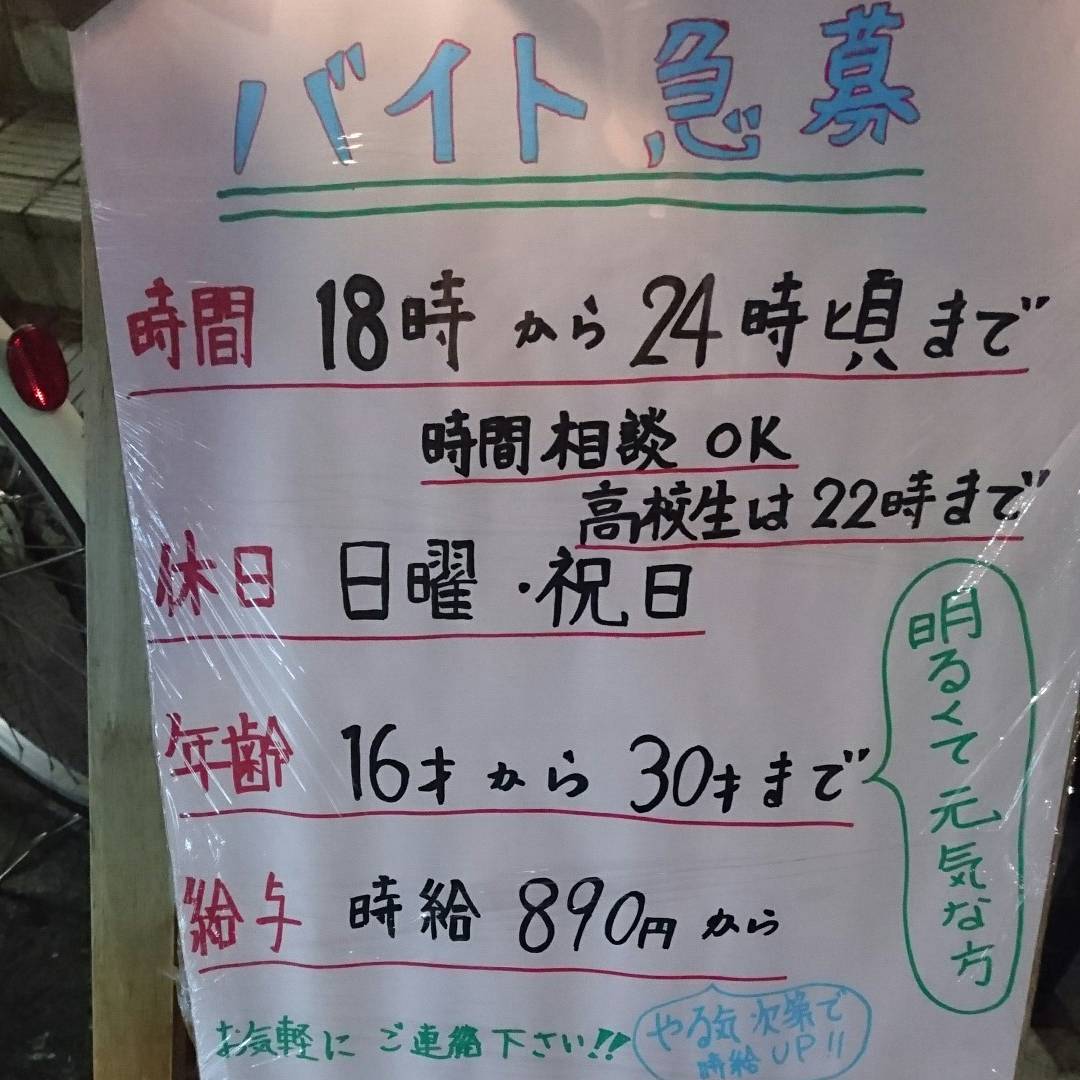 バイト急募
時間 18時から24時頃まで
時間相談 OK
高校生は22時まで
休日 日曜・祝日
年齢 16才から30才まで
明るくて元気な方
給与 時給890円から
お気軽にご連絡下さい!!
やる気次第で
時給UP!!